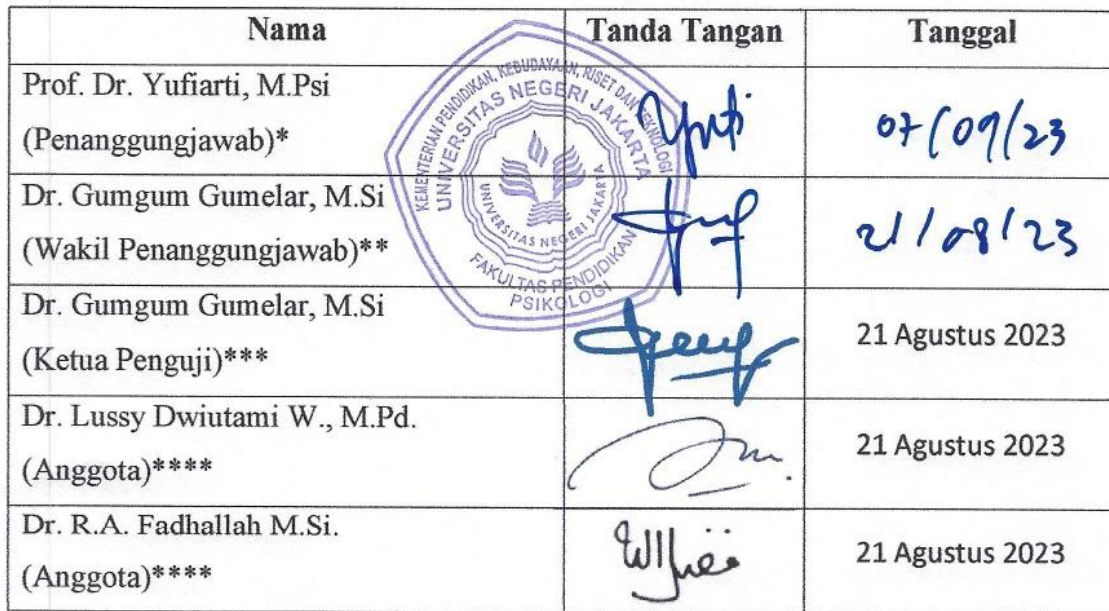 Nama Tanda Tangan Tanggal
Prof. Dr. Yufiarti, M.Psi
(Penanggungjawab)* 07/09/23
Dr. Gumgum Gumelar, M.Si
(Wakil Penanggungjawab)** 21/08/23
Dr. Gumgum Gumelar, M.Si
(Ketua Penguji)*** 21 Agustus 2023
Dr. Lussy Dwiutami W., M.Pd.
(Anggota)**** 21 Agustus 2023
Dr. R.A. Fadhallah M.Si.
(Anggota)**** 21 Agustus 2023
KEMENTERIAN PENDIDIKAN, KEBUDAYAAN, RISET DAN TEKNOLOGI
UNIVERSITAS NEGERI JAKARTA
UNIVERSITAS NEGERI JAKARTA
FAKULTAS PENDIDIKAN
PSIKOLOGI